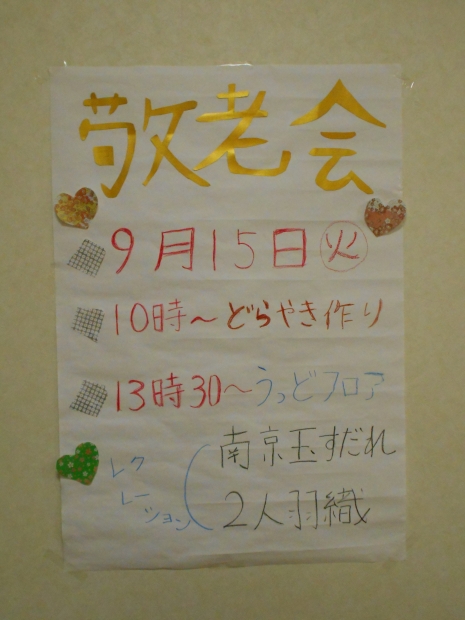 敬老会
9月15日㊋
10時～どらやき作り
13時30～うっどフロア
レクレーション
南京玉すだれ
2人羽織